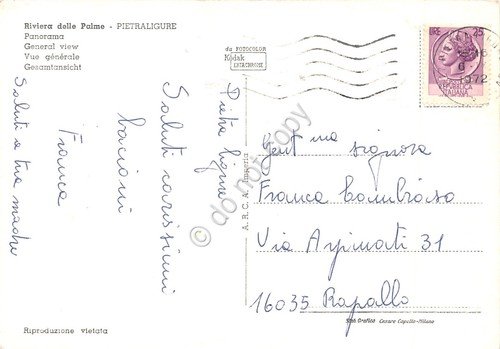 Riviera delle Palme - PIETRALIGURE
Panorama
General view
Vue générale
Gesamtansicht
da FOTOCOLOR
Kodak
EKTACHROME
LIRE 25
1972
REPUBBLICA
ITALIANA
Pietra Ligure
Saluti carissimi
bacioni
Franca
Saluti a tua madre
A.R.C.A. Imperia
do not copy
Gent ma signora
Franca Lombroso
Via 31
16035 Rapallo
Stab. Grafico Cesare Capello-Milano
Riproduzione vietata